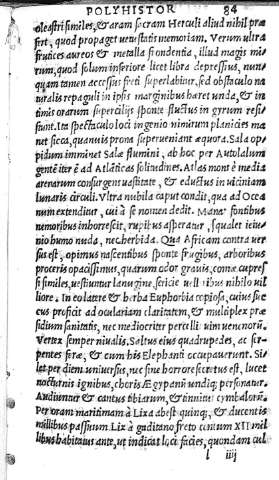 POLYHISTOR 84
oleastri similes, & aram sacram Herculi aliud nihil præ
fert, quod propaget vetustatis memoriam. Verum ultra
frutices aureos & metalla frondentia, illud magis mi
rum, quod solum inferiore licet libra depressius, nun
quam tamen accessu freti superlabitur, sed obstaculo na
turalis repaguli in ipsis marginibus hæret unda, & in
timis orarum superciliis sponte fluctus in gyrum resi
stunt. Ita spectaculo loci ingenio nimirum planicies ma
net sicca, quamuis prona superueniant æquora. Sala op
pidum imminet Salæ flumini, ab hoc per Autololum
gentē iter ē ad Atlāticas solitudines. Atlas mont ē media
arenarum consurgens uastitate, & eductus in uiciniam
lunaris circuli. Vltra nubila caput condit, qua ad Ocea
num extenditur, cui à se nomen dedit. Manat fontibus
nemoribus inhorrescit, rupibus asperatur, squalet ieiu-
nio humo nuda, nec herbida. Qua Africam contra ver
sus est, opimus nascentibus sponte frugibus, arboribus
proceris opacissimus, quarum odor grauis, comæ cupres
si similes, uestiuntur lanugine, sericis uelleribus nihilo uil
liore. In eo latere & herba Euphorbia copiosa, cuius suc
cus proficit ad oculariam claritatem, & multiplex præ
sidium sanitatis, nec mediocriter percellit uim uenenorū.
Vertex semper niualis. Saltus eius quadrupedes, ac ser-
pentes feræ, & cum his Elephanti occupauerunt. Si
let per diem uniuersus, nec sine horrore secretus est, lucet
nocturnis ignibus, choris Ægypanū undiq; personatur.
Audiuntur & cantus tibiarum, & tinnitus cymbalorū.
Per oram maritimam à Lixa abest quinq; & ducentis
millibus passuum. Lix à gaditano freto centum XII mil
libus habitatus ante, ut indicat loci facies, quondam cul
l iiij